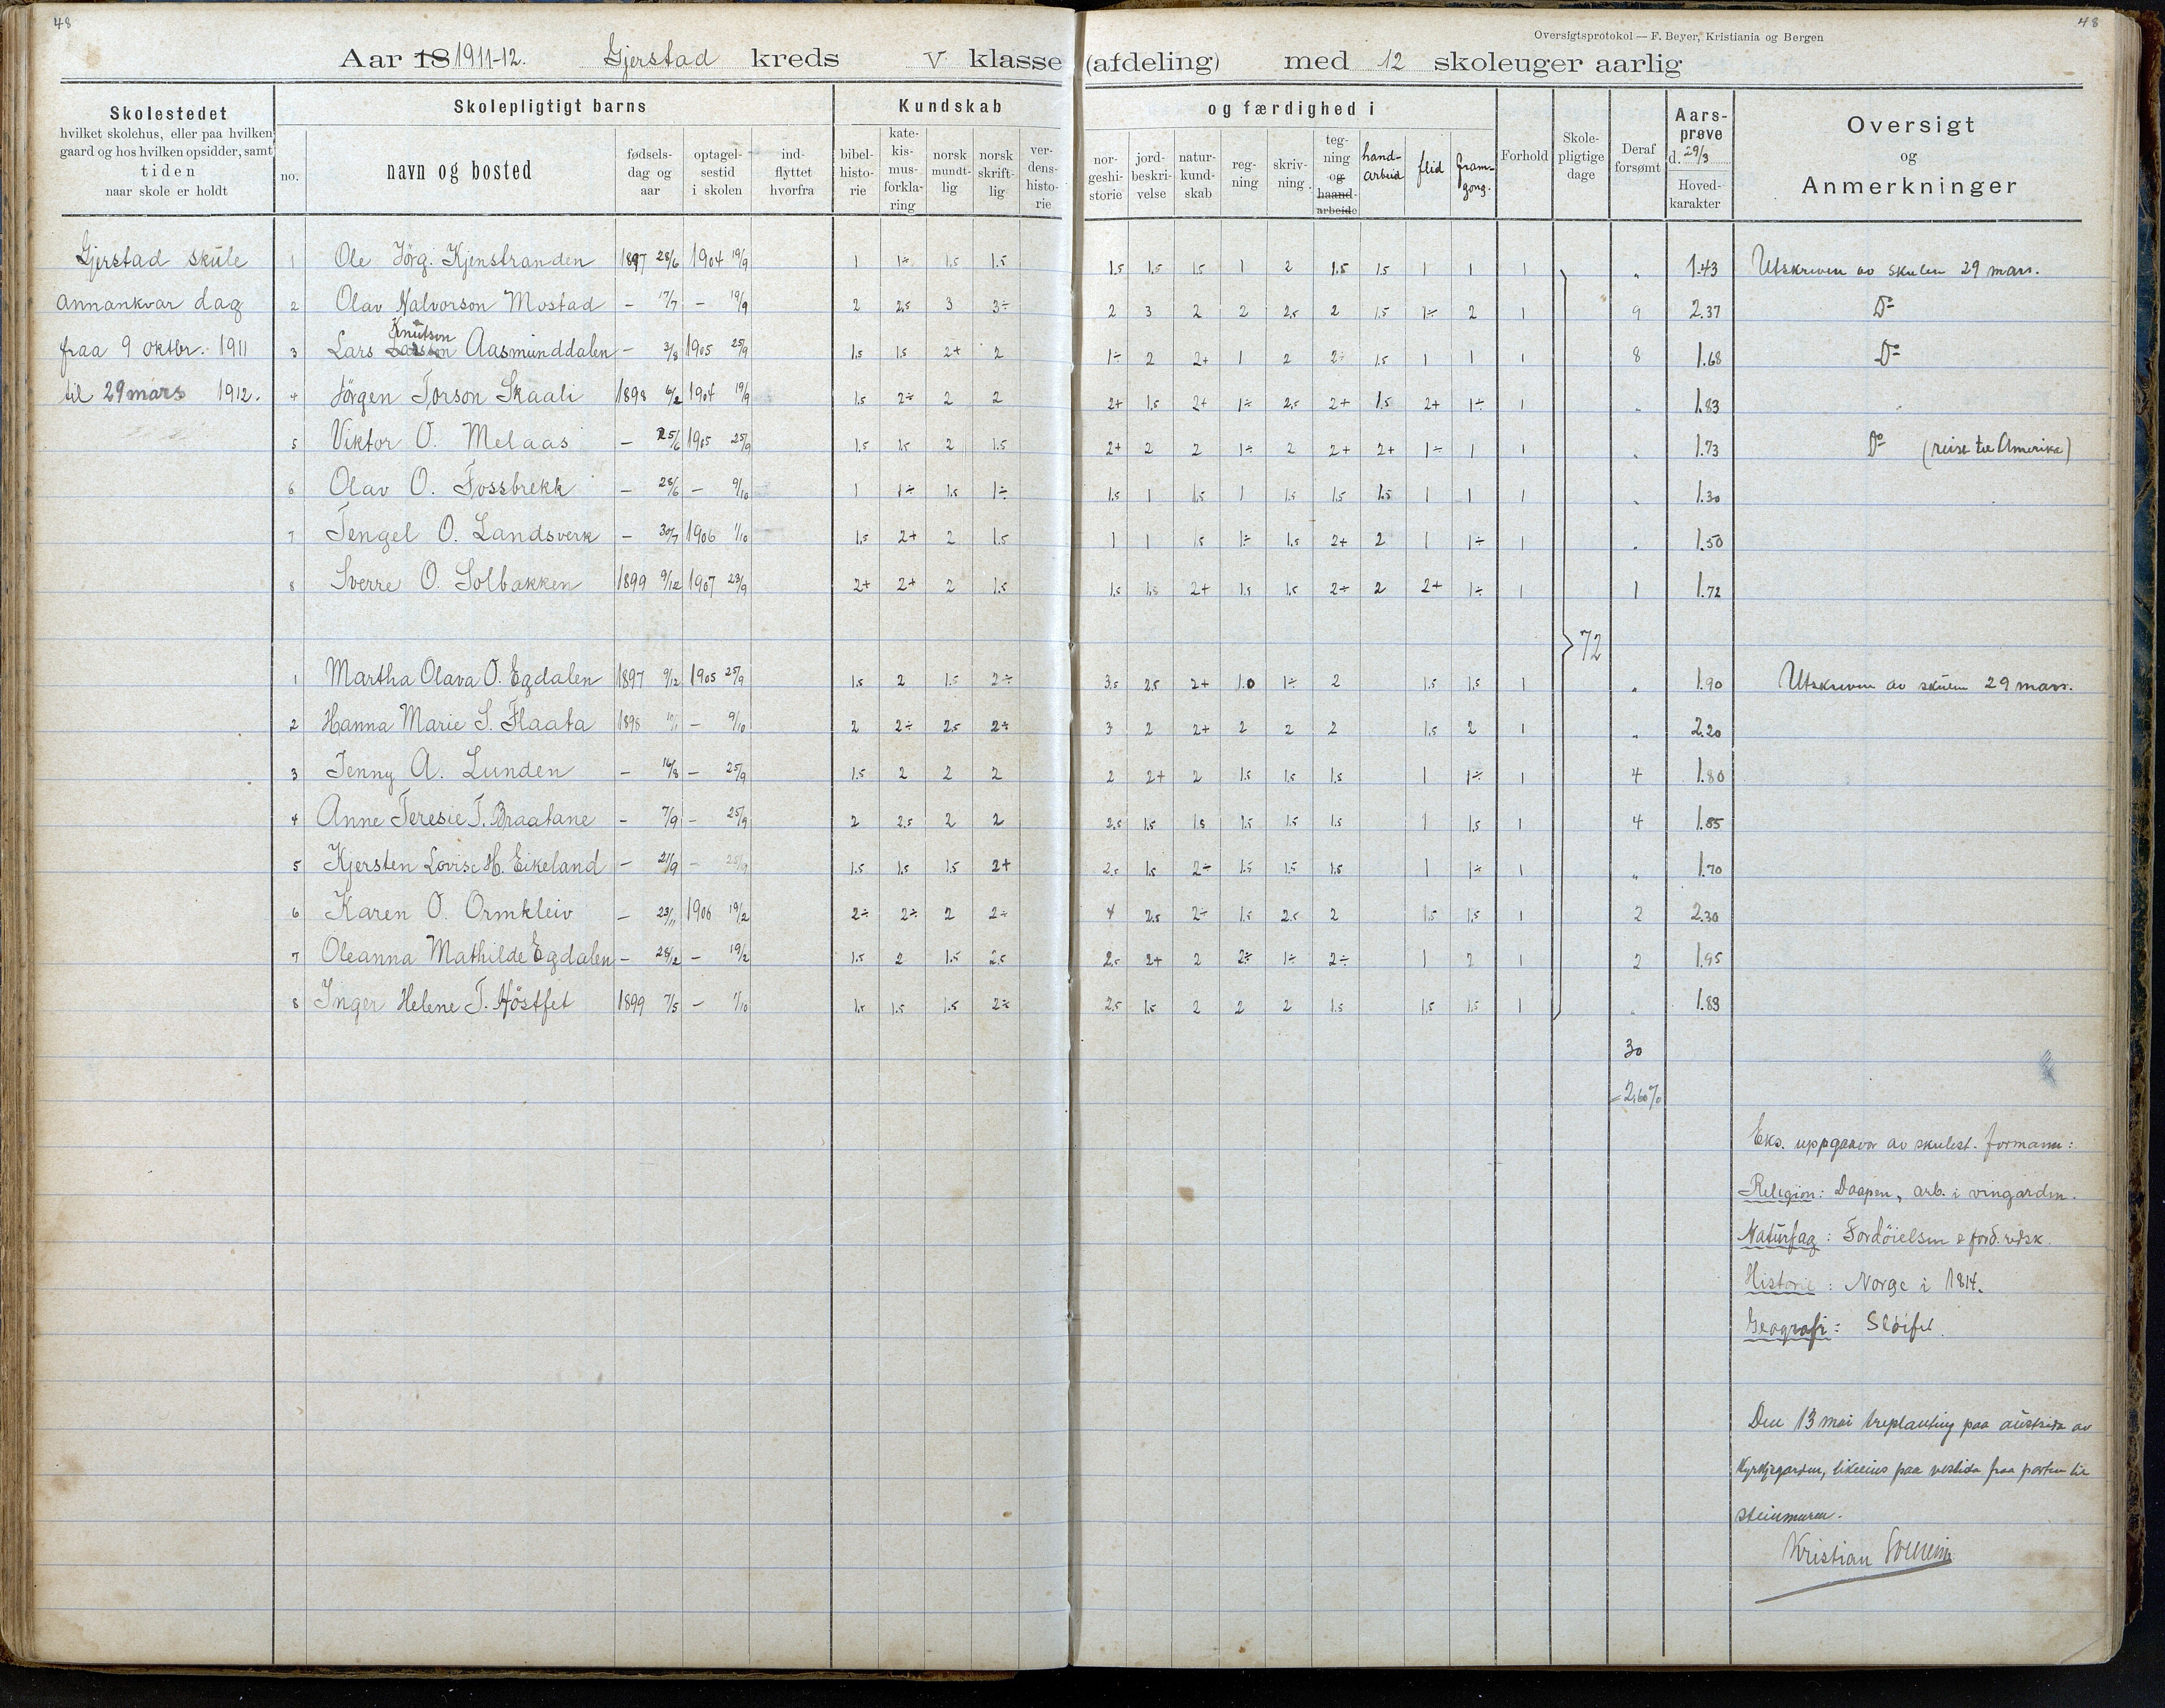 48
48
Oversigtsprotokol — F. Beyer, Kristiania og Bergen
Aar 18 1911-12. Gjerstad kreds V klasse (afdeling) med 12 skoleuger aarlig
Skolestedet
hvilket skolehus, eller paa hvilken
gaard og hos hvilken opsidder, samt
tiden
naar skole er holdt
Skolepligtigt barns
no.
navn og bosted
fødsels-
dag og
aar
optagel-
sestid
i skolen
ind-
flyttet
hvorfra
Kundskab
bibel-
histo-
rie
kate-
kis-
mus-
forkla-
ring
norsk
mundt-
lig
norsk
skrift-
lig
ver-
dens-
histo-
rie
og færdighed i
nor-
geshi-
storie
jord-
beskri-
velse
natur-
kund-
skab
reg-
ning
skriv-
ning.
teg-
ning
og
haand-
arbeide
hand-
arbeid
flid
fram-
gong.
Forhold
Skole-
pligtige
dage
Deraf
forsømt
Aars-
prøve
d. 29/3
Hoved-
karakter
Oversigt
og
Anmerkninger
Gjerstad skule 1 Ole Jörg. Kjenstranden 1897 28/6 1904 19/9 1 1÷ 1.5 1.5 1.5 1.5 1.5 1 2 1.5 1.5 1 1 1 „ 1.43 Utskreven av skulen 29 mars.
annankvar dag 2 Olav Halvorson Mostad – 17/7 – 19/9 2 2.5 3 3÷ 2 3 2 2 2.5 2 1.5 1÷ 2 1 9 2.37 Do
Knutson
fraa 9 oktbr. 1911 3 Lars Larsson Aasmunddalen – 3/8 1905 25/9 1.5 1.5 2+ 2 1÷ 2 2+ 1 2 2÷ 1.5 1 1 1 8 1.68 Do
til 29 mars 1912. 4 Jörgen Torson Skaali 1898 6/2 1904 19/9 1.5 2÷ 2 2 2+ 1.5 2+ 1÷ 2.5 2+ 1.5 2+ 1÷ 1 „ 1.83
5 Viktor O. Melaas – 25/6 1905 25/9 1.5 1.5 2 1.5 2+ 2 2 1÷ 2 2+ 2+ 1÷ 1 1 „ 1.73 Do (reist til Amerika)
6 Olav O. Fossbrekk – 28/6 – 9/10 1 1÷ 1.5 1÷ 1.5 1 1.5 1 1.5 1.5 1.5 1 1 1 „ 1.30
7 Tengel O. Landsverk – 30/7 1906 1/10 1.5 2+ 2 1.5 1 1 1.5 1÷ 1.5 2+ 2 1 1÷ 1 „ 1.50
8 Sverre O. Solbakken 1899 9/12 1907 23/9 2+ 2+ 2 1.5 1.5 1.5 2+ 1.5 1.5 2+ 2 2+ 1÷ 1 1 1.72
72
1 Martha Olava O. Egdalen 1897 9/12 1905 25/9 1.5 2 1.5 2÷ 3.5 2.5 2+ 1.0 1÷ 2 1.5 1.5 1 „ 1.90 Utskreven av skulen 29 mars.
2 Hanna Marie S. Flaata 1898 – 9/10 2 2÷ 2.5 2÷ 3 2 2+ 2 2 2 1.5 2 1 „ 2.20
3 Jenny A. Lunden – 16/8 – 25/9 1.5 2 2 2 2 2+ 2 1.5 1.5 1.5 1 1÷ 1 4 1.80
4 Anne Teresie T. Braatane – 7/9 – 25/9 2 2.5 2 2 2.5 1.5 1.5 1.5 1.5 1.5 1 1.5 1 4 1.85
5 Kjersten Lovise H. Eikeland – 21/9 – 25/9 1.5 1.5 1.5 2+ 2.5 1.5 2÷ 1.5 1.5 1.5 1 1÷ 1 „ 1.70
6 Karen O. Ormkleiv – 23/11 1906 19/2 2÷ 2÷ 2 2÷ 4 2.5 2÷ 1.5 2.5 2 1.5 1.5 1 2 2.30
7 Oleanna Mathilde Egdalen – 28/12 – 19/2 1.5 2 1.5 2.5 2.5 2+ 2 2÷ 1÷ 2÷ 1 2 1 2 1.95
8 Inger Helene T. Höstfet 1899 7/5 – 1/10 1.5 1.5 1.5 2÷ 2.5 1.5 2 2 2 1.5 1.5 1.5 1 „ 1.83
30
= 2,60%
Eks. uppgaavor av skulest. formann:
Religion: Daapen, arb. i vingarden.
Naturfag: Fordöielsen & ford. vdsk.
Historie: Norge i 1814.
Geografi: Sløifet.
Den 13 mai treplanting paa austsida av
Kyrkjegarden, likeeins paa vestsida fraa porten til
steinmuren.
Kristian